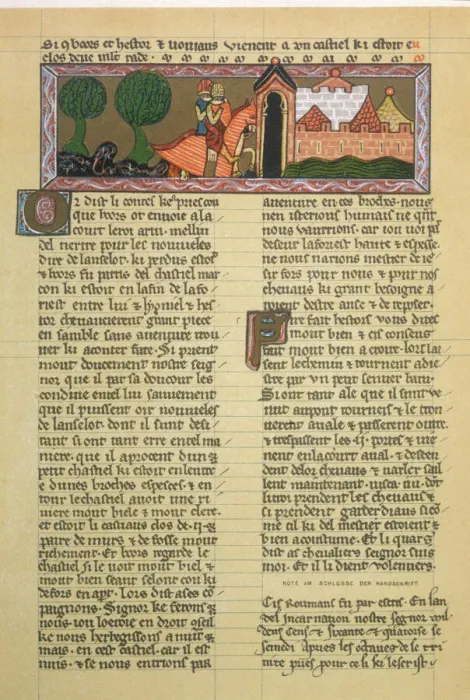 Si q̃ boors et hestor & lionaus vienent a vn castiel ki estoit en
clos dene mlt rade.
Or dist li contes ke pres cou
que boors or enuoie a la
court le roi artu. mellin
del ncrire por les nouueles
dire de lanselot. ki perdus estoit
& bors fu partis del chastiel mar
con ki estoit en la fin de la fo
riest entre lui & lyoniel & hes
tor cheuaucierent grant piece
en samble sans auenture trou
uer ki aconter face. Si prient
mout doucement nostre seig
nor que il par sa doucour les
conduie en tel liu sauuement
que il puissent oir nouueles
de lanselot. dont il sunt desi
rant si ont tant erre en tel ma
niere. que il aprocent dun
petit chastiel ki estoit en lentre
e dunes broches espesses. & en
tour le chastiel auoit vne ri
uiere mout biele & mout clere.
et estoit li castiaus clos de .ij.
paire de murs & de fosse mout
richement. Et bors regarde le
chastiel si le uoit mout biel &
mout bien seant selont cou ki
defors en apt. Lors dist a ses co
paignons. Signor ke ferons
nous. iou loeroie en droit
ke nous herbegissons a nuit
mais. en cest castiel. car il est
nuis. & se nous entrons par
auenture en ces broches. nous
nen isterions humais ne
nous vaurrions. car iou uoi
deseur la foriest haute & espesse.
ne nous narions mestier de
sir fors pour nous & pour nos
cheuaus ki grant besoigne a
roient destre aise & de reposer.
Par fait hestors vous dites
mout bien & cis conseus
fait mout bien a croire. lors lai
sent le chemin & tournent a die
stre par vn petit sentier
Si ont tant ale que il sunt ve
nut au pont tourneis & le trou
uerent auale & passerent outre.
& trespassent les .ij. portes & vie
nent en la court aual. & desen
dent de lor cheuaus & varlet sail
lent maintenant. iusca. .iiij. dot
li troi prendent les cheuaus &
si prendent garder dians si co
me cil ki del mestier estoient
bien acoustume. Et li quars
dist as cheualiers seignor suis
moi. Et il li dient volentiers.
NOTE AM SCHLUSSE DER HANDSCHRIFT
Cis Roumans fu par escris. En lan
del Incarnation nostre segnor. mil
deus Cens & sixante & quatorse le
semedi Apries les octaues de le tri
nite pries pour ce li ki lescrist